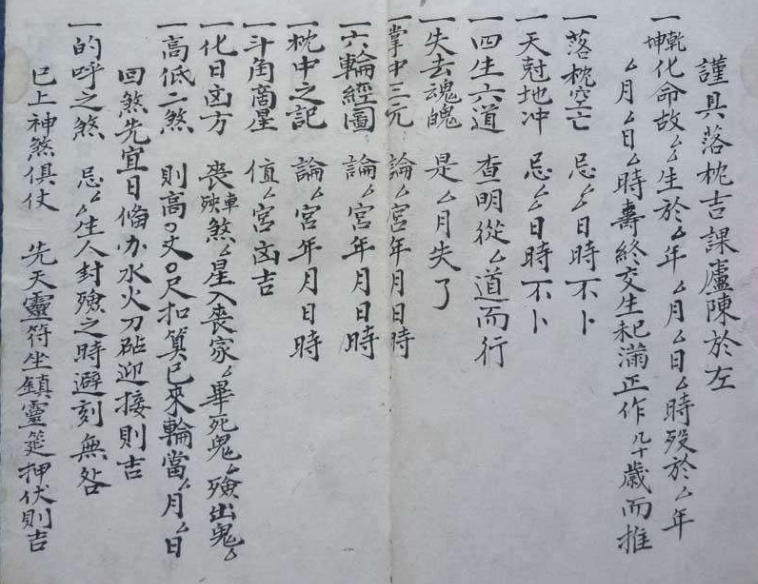 謹具落枕吉課廬陳於左
一乾坤化命故厶厶生於厶年厶月厶日厶時歿於厶年
厶月厶日厶時壽終交生祀滿正作几十歲而推
一落枕空亡 忌厶日時不卜
一天尅地冲 忌厶日時不卜
一四生六道 查明從厶道而行
一失去魂魄 是厶月失了
一掌中三元 論厶宮年月日時
一六輪經圖 論厶宮年月日時
一枕中之記 論厶宮年月日時
一斗角啇星 值厶宮凶吉
一化日凶方 喪車殃煞厶星入喪家厶畢死鬼厶殮出鬼厶
一高低二煞 則高〇丈〇尺扣算已來輪當厶月厶日
回煞先宜日俻办水火刀砧迎接則吉
一的呼之煞 忌厶生人封殮之時避刻無咎
已上神煞俱仗 先天靈符坐鎮靈筵押伏則吉